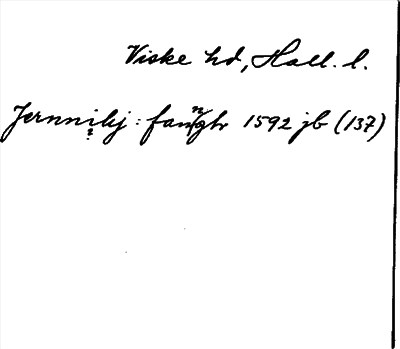 Viske hd, Hall. l.
Jernnilij : fanngh 1592 jb (137)